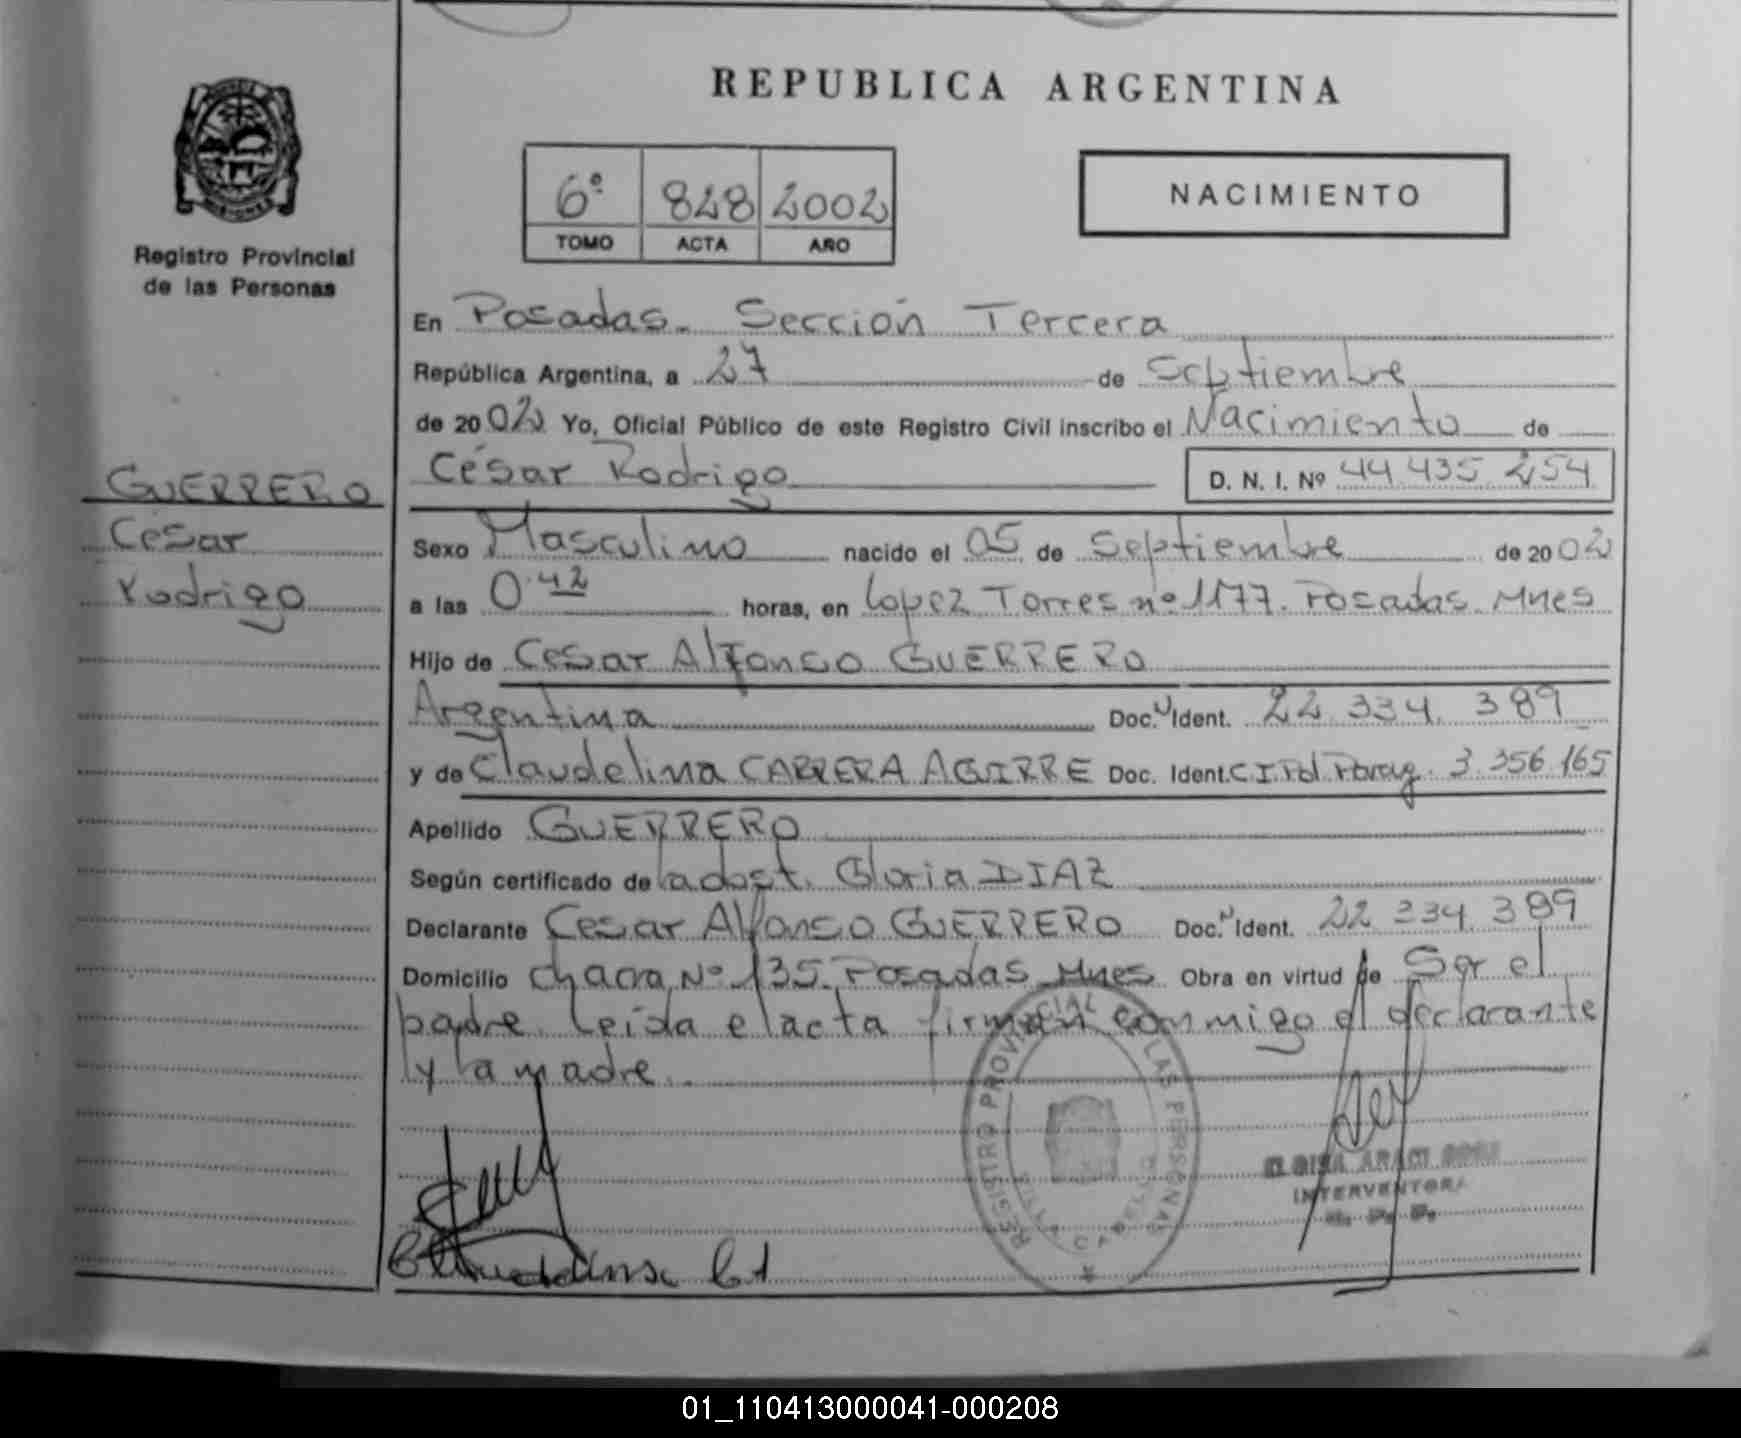 REPUBLICA ARGENTINA
6º 828 2002
TOMO ACTA AÑO
NACIMIENTO
MISIONES
Registro Provincial
de las Personas
GUERRERO
César
Rodrigo
En Posadas. Sección Tercera
República Argentina, a 27 de Septiembre
de 2002 Yo, Oficial Público de este Registro Civil inscribo el Nacimiento de
César Rodrigo D. N. I. Nº 44 435 254
Sexo Masculino nacido el 05 de Septiembre de 2002
a las 0.42 horas, en Lopez Torres nº 1177. Posadas. Mnes
Hijo de Cesar Alfonso GUERRERO
Argentina Doc. Ident. 22 334 389
y de Claudelina CABRERA AGIRRE Doc. Ident. C I Pol Parag. 3 356 165
Apellido GUERRERO
Según certificado de la obst. Gloria DIAZ
Declarante Cesar Alfonso GUERRERO Doc. Ident. 22 334 389
Domicilio chacra Nº 135. Posadas Mnes Obra en virtud de Ser el
padre. Leída el acta firman conmigo el declarante
y la madre.
REGISTRO PROVINCIAL LAS PERSONAS
VILLA CABELLO
INTERVENTORA
R. P. P.
01_110413000041-000208